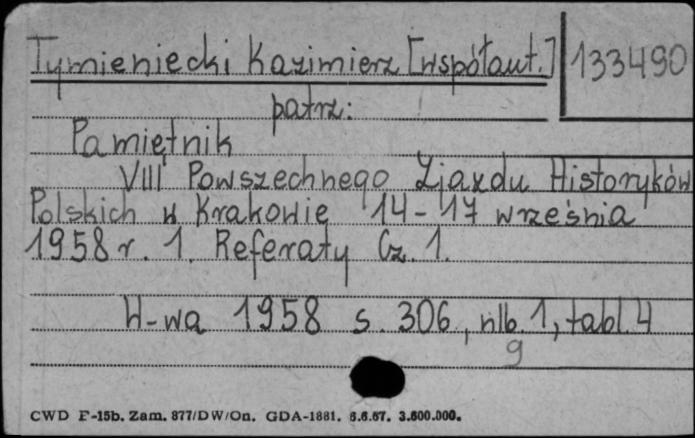 Tymieniecki Kazimierz [współaut.] 133490
patrz:
Pamiętnik
VIII Powszechnego Zjazdu Historyków
Polskich w Krakowie 14-17 września
1958 r. 1. Referaty Cz. 1.
W-wa 1958 s. 306, nlb. 1, tabl. 4
9
CWD F-15b. Zam. 877/DW/On. GDA-1881. 6.6.67. 3.600.000.